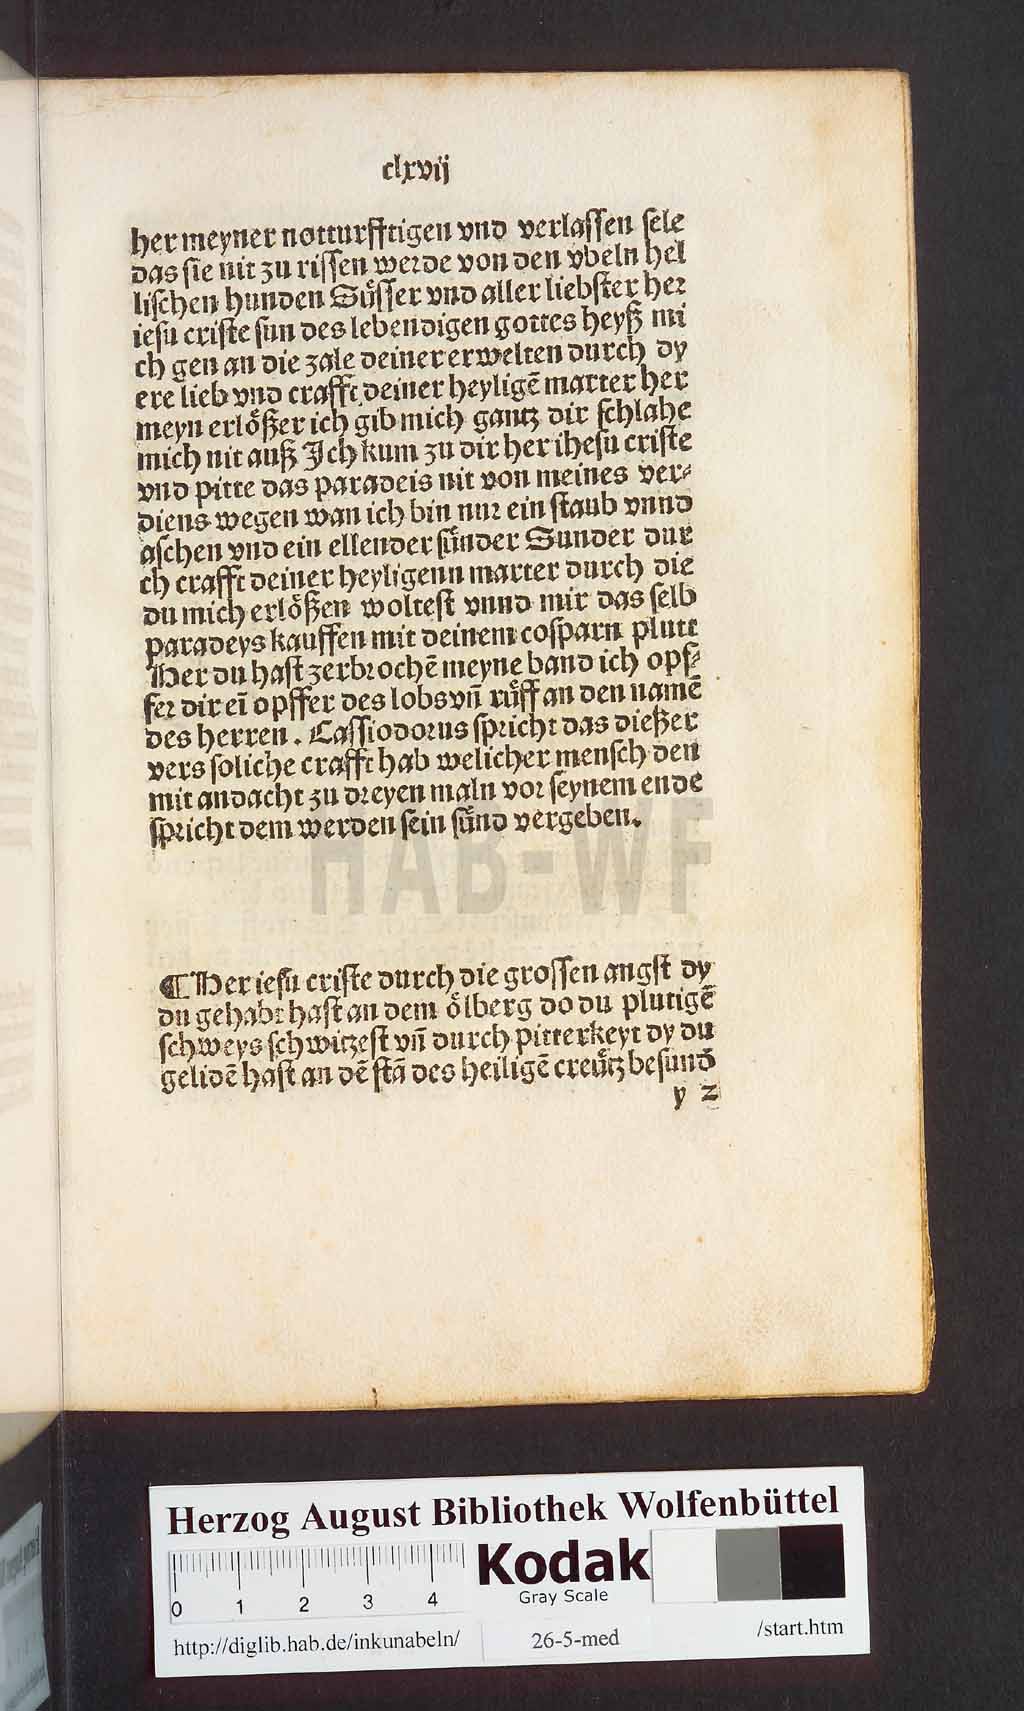 clxvij
her meyner notturfftigen vnd verlassen sele
das sie nit zu rissen werde von den vbeln hel
lischen hunden Süsser vnd aller liebster her
iesu criste sun des lebendigen gottes heyß mi
ch gen an die zale deiner erwelten durch dy
ere lieb vnd crafft deiner heyligē marter her
meyn erlößer ich gib mich gantz dir schlahe
mich nit auß Ich kum zu dir her ihesu criste
vnd pitte das paradeis nit von meines ver⸗
diens wegen wan ich bin nur ein staub vnnd
aschen vnd ein ellender sünder Sunder dur
ch crafft deiner heyligenn marter durch die
du mich erlößen woltest vnnd mir das selb
paradeys kauffen mit deinem cosparn plutt
Her du hast zerbrochē meyne band ich opf⸗
fer dir eī opffer des lobs vñ rüff an den namē
des herren. Cassiodorus spricht das dießer
vers soliche crafft hab welicher mensch den
mit andacht zu dreyen maln vor seynem ende
spricht dem werden sein sünd vergeben.
HAB-WF
¶ Her iesu criste durch die grossen angst dy
du gehabt hast an dem ölberg do du plutigē
schweys schwitzest vñ durch pitterkeyt dy du
gelidē hast an dē stā des heiligē creütz besund
y 2
Herzog August Bibliothek Wolfenbüttel
0 1 2 3 4
Kodak
Gray Scale
http://diglib.hab.de/inkunabeln/ 26-5-med /start.htm